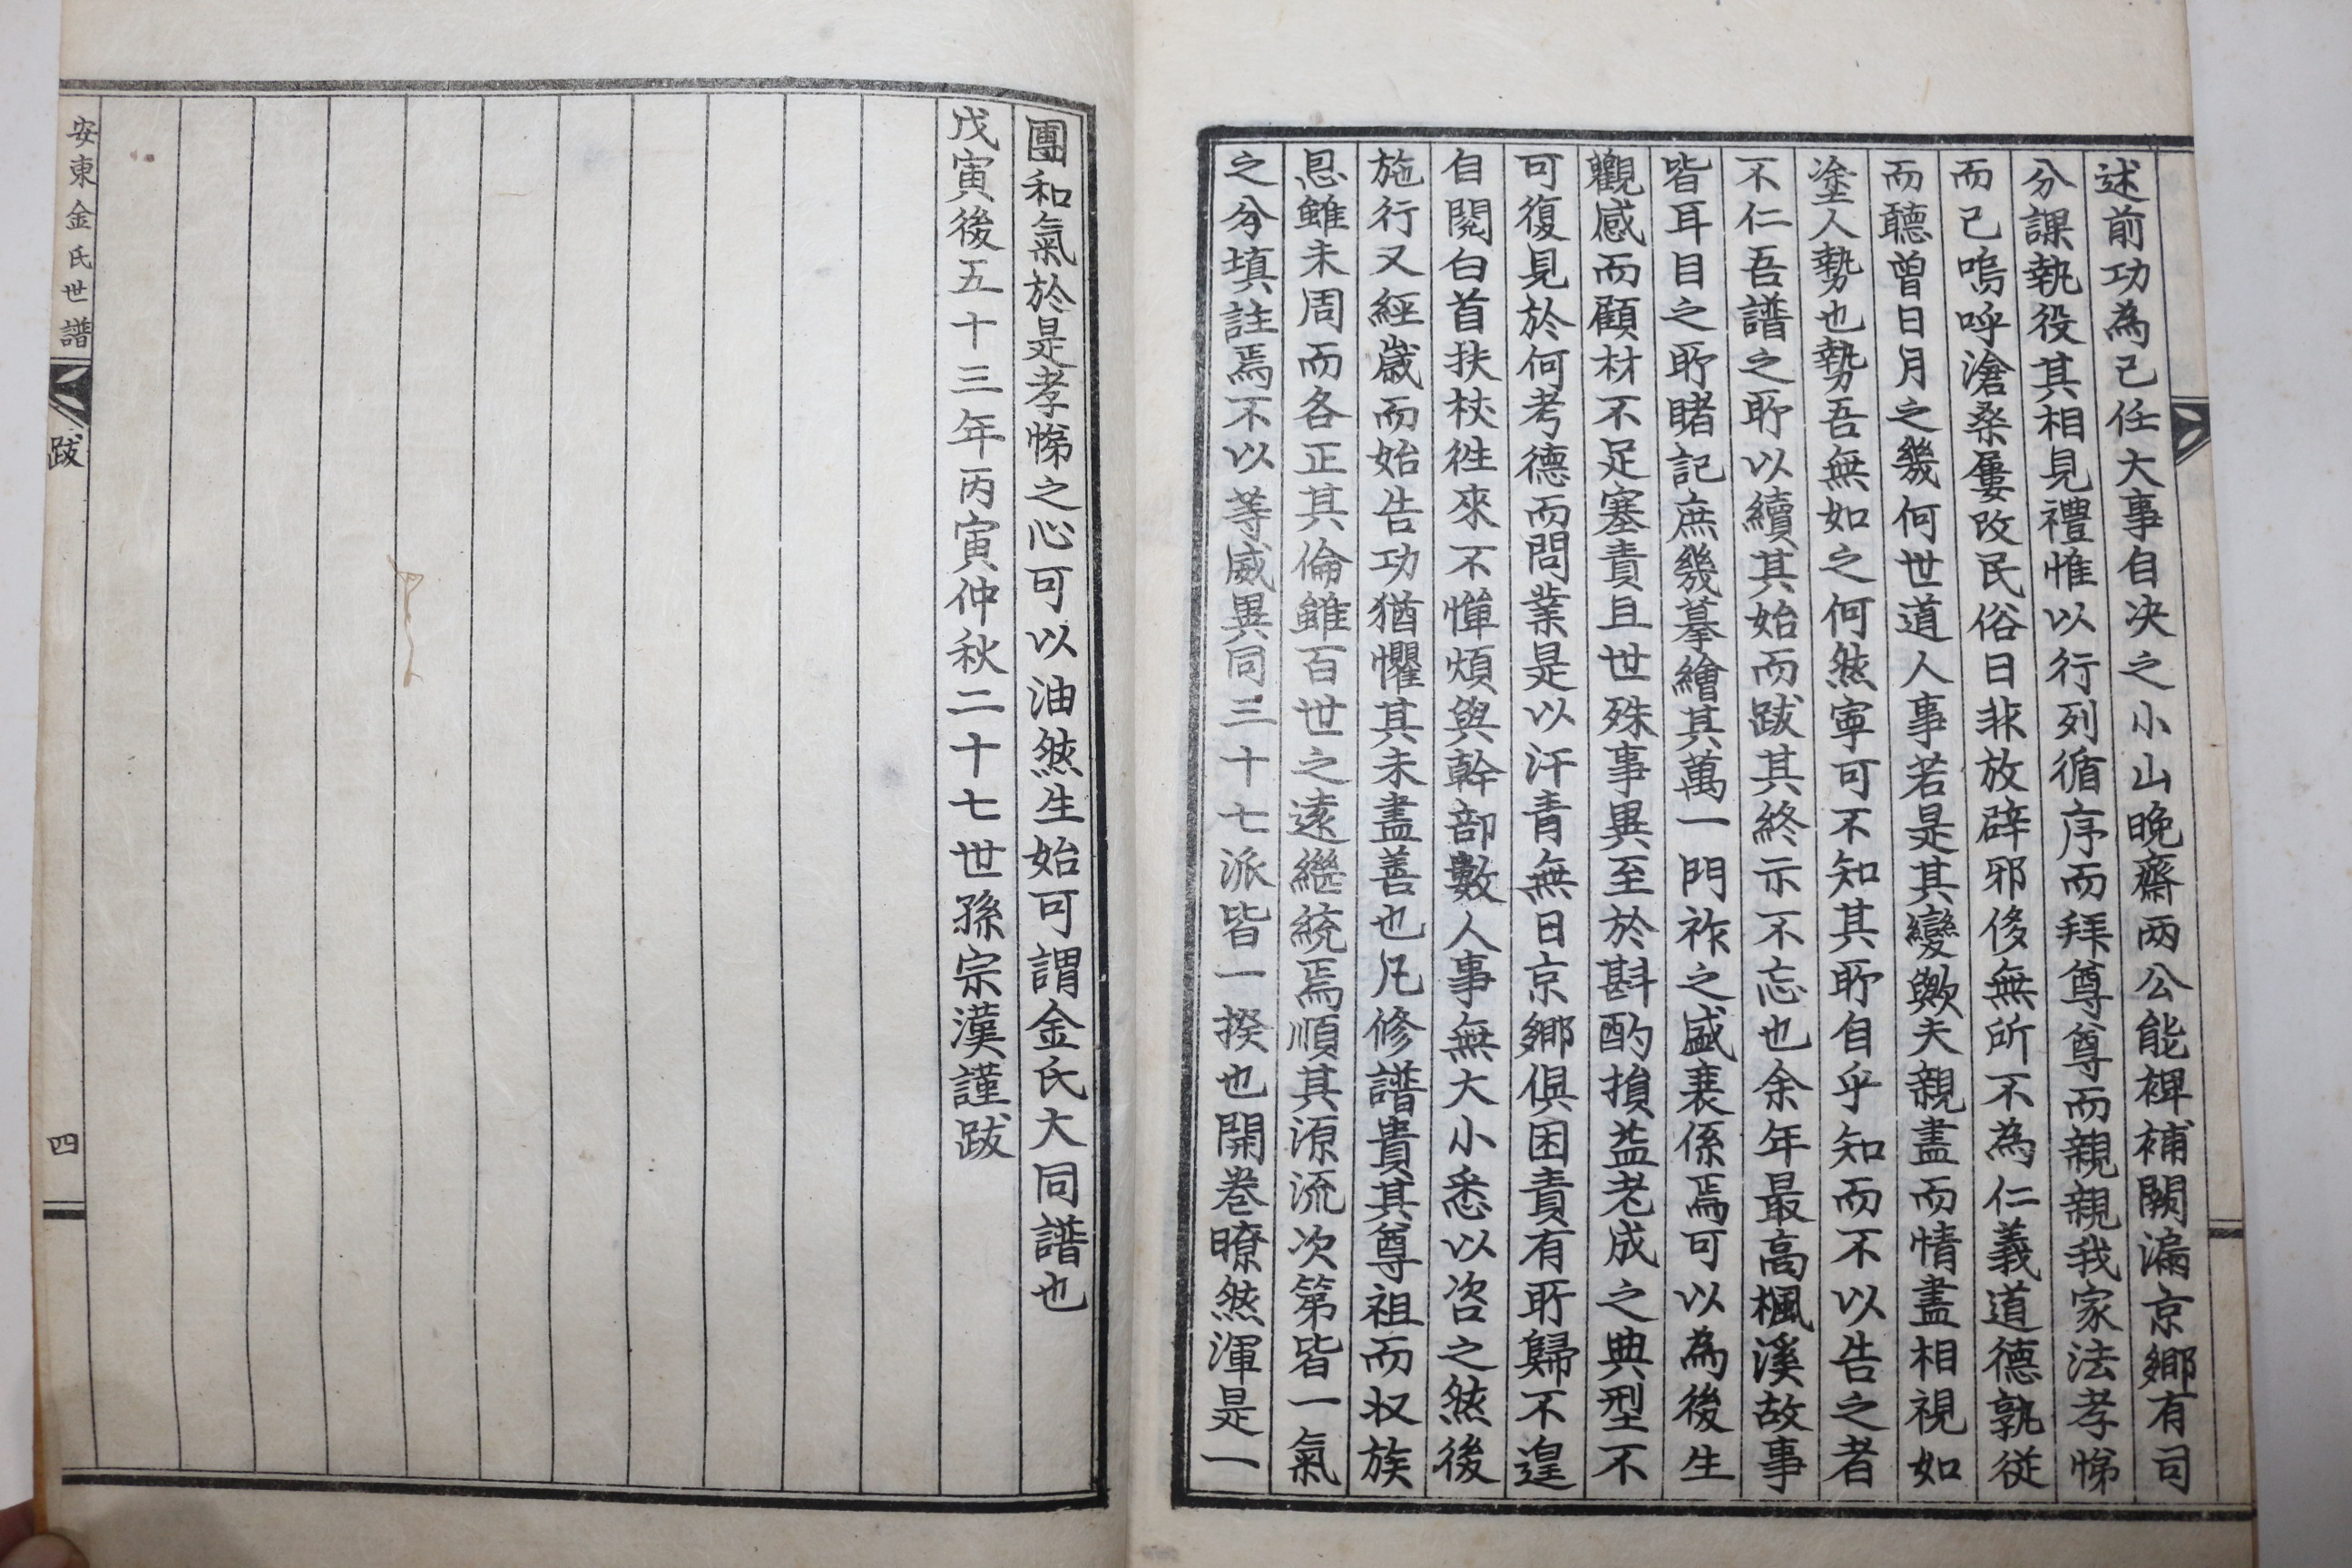 述前功為己任大事自决之小山晚齋两公能裨補闕漏京鄉有司
分課執役其相見禮惟以行列循序而拜尊尊而親親我家法孝悌
而已嗚呼滄桑屢改民俗日非放辟邪侈無所不為仁義道德孰從
而聽曾日月之幾何世道人事若是其變歟夫親盡而情盡相視如
塗人勢也勢吾無如之何然寧可不知其所自乎知而不以告之者
不仁吾譜之所以續其始而跋其終示不忘也余年最高楓溪故事
皆耳目之所睹記庶幾摹繪其萬一門祚之盛衰係焉可以為後生
觀感而顧材不足塞責且世殊事異至於斟酌損益老成之典型不
可復見於何考德而問業是以汗青無日京鄉俱困責有所歸不遑
自閱白首扶杖往來不憚煩與幹部數人事無大小悉以咨之然後
施行又經歲而始告功猶懼其未盡善也凡修譜貴其尊祖而收族
恩雖未周而各正其倫雖百世之遠繼統焉順其源流次第皆一氣
之分填註焉不以等威異同三十七派皆一揆也開卷暸然渾是一
團和氣於是孝悌之心可以油然生始可謂金氏大同譜也
戊寅後五十三年丙寅仲秋二十七世孫宗漢謹跋
安東金氏世譜 跋 四